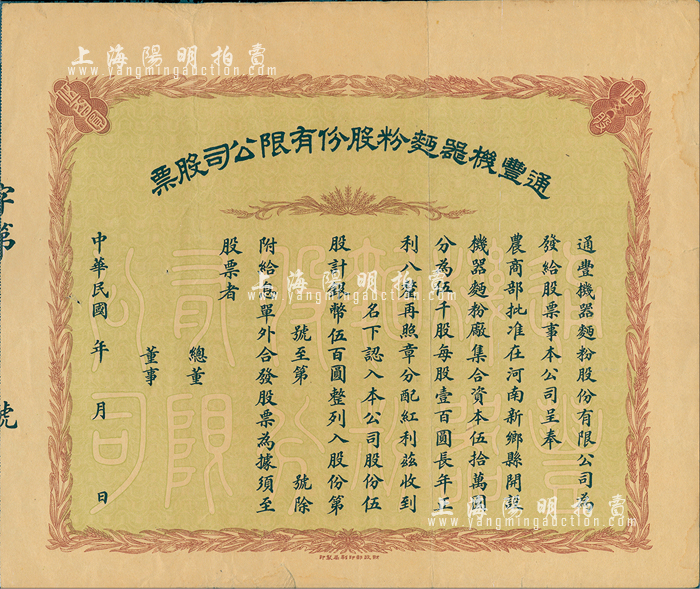 上海陽明拍賣
www.yangmingauction.com
通豐機器麵粉股份有限公司股票
通豐機器麵粉股份有限公司為
發給股票事本公司呈奉
農商部批准在河南新鄉縣開設
機器麵粉廠集合資本伍拾萬圓
分為伍千股每股壹百圓長年正
利八釐再照章分配紅利茲收到
名下認入本公司股份伍
股計銀幣伍百圓整列入股份第
號至第 號除
附給息單外合發股票為據須至
股票者
總董
董事
中華民國 年 月 日
字第 號
上海陽明拍賣
www.yangmingauction.com
上海陽明拍賣
www.yangmingauction.com
財政部印刷局製印